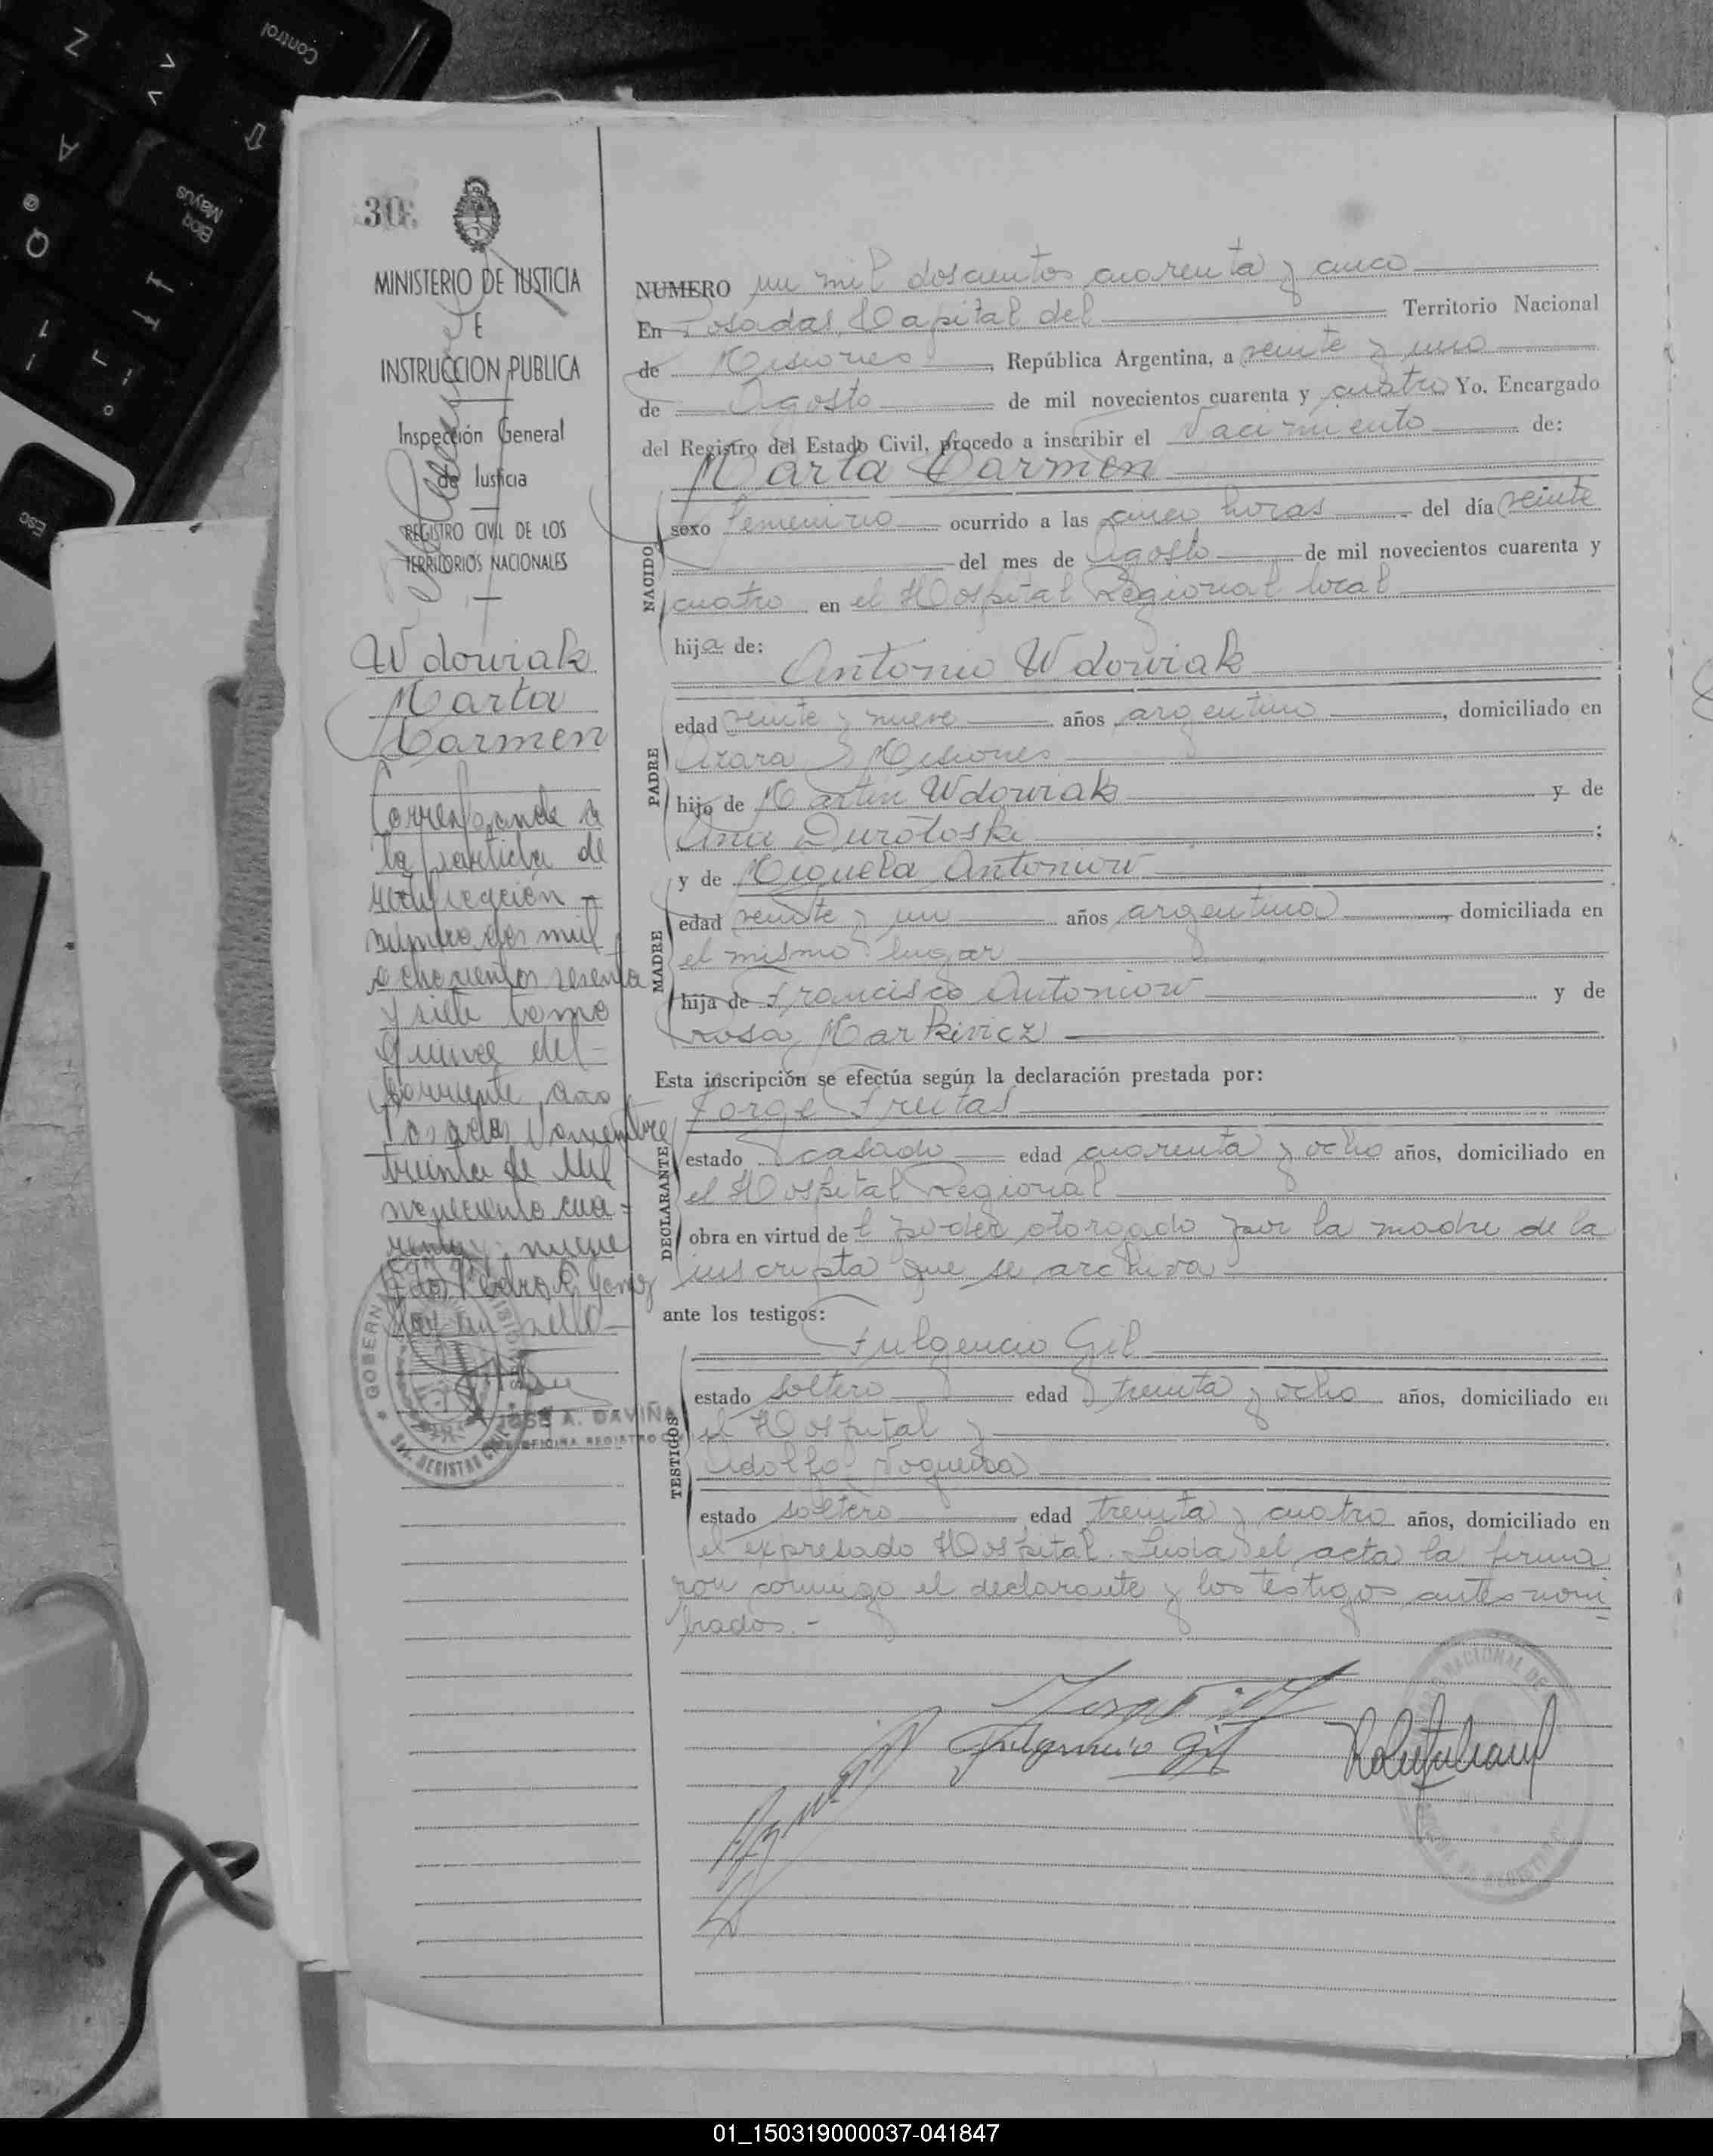 Control
Z
A
Bloq
Mayús
@
Q
Esc
30
MINISTERIO DE JUSTICIA
E
INSTRUCCION PUBLICA
Inspección General
de Justicia
REGISTRO CIVIL DE LOS
TERRITORIOS NACIONALES
Wdowiak
Marta
Carmen
Corresponde a
la partida de
rectificación
número dos mil
ochocientos sesenta
y siete tomo
quince del
corriente año
Posadas Noviembre
treinta de Mil
novecientos cua-
renta y nueve
Fdo Pedro Gomez
Hay un sello
JOSE A. DAVIÑA
OFICINA REGISTRO
NUMERO un mil doscientos cuarenta y cinco
En Posadas, Capital del Territorio Nacional
de Misiones, República Argentina, a veinte y uno
de Agosto de mil novecientos cuarenta y cuatro Yo. Encargado
del Registro del Estado Civil, procedo a inscribir el Nacimiento de:
Marta Carmen
NACIDO
sexo femenino ocurrido a las cinco horas del día veinte
del mes de Agosto de mil novecientos cuarenta y
cuatro en el Hospital Regional local
hija de:
Antonio Wdowiak
PADRE
edad veinte y nueve años argentino, domiciliado en
Azara, Misiones
hijo de Martin Wdowiak y de
Ana Durotoski;
y de Miguela Antoniow
MADRE
edad veinte y un años argentina, domiciliada en
el mismo lugar
hija de Francisco Antoniow y de
rosa Markivicz
Esta inscripción se efectúa según la declaración prestada por:
Jorge Freitas
DECLARANTE
estado casado edad cuarenta y ocho años, domiciliado en
el Hospital Regional
obra en virtud del poder otorgado por la madre de la
inscripta que se archiva
ante los testigos:
Fulgencio Gil
TESTIGOS
estado soltero edad treinta y ocho años, domiciliado en
el Hospital y
Adolfo Nogueira
estado soltero edad treinta y cuatro años, domiciliado en
el expresado Hospital. Leida el acta la firma
ron conmigo el declarante y los testigos antes nom
brados.-
Fulgencio Gil
01_150319000037-041847